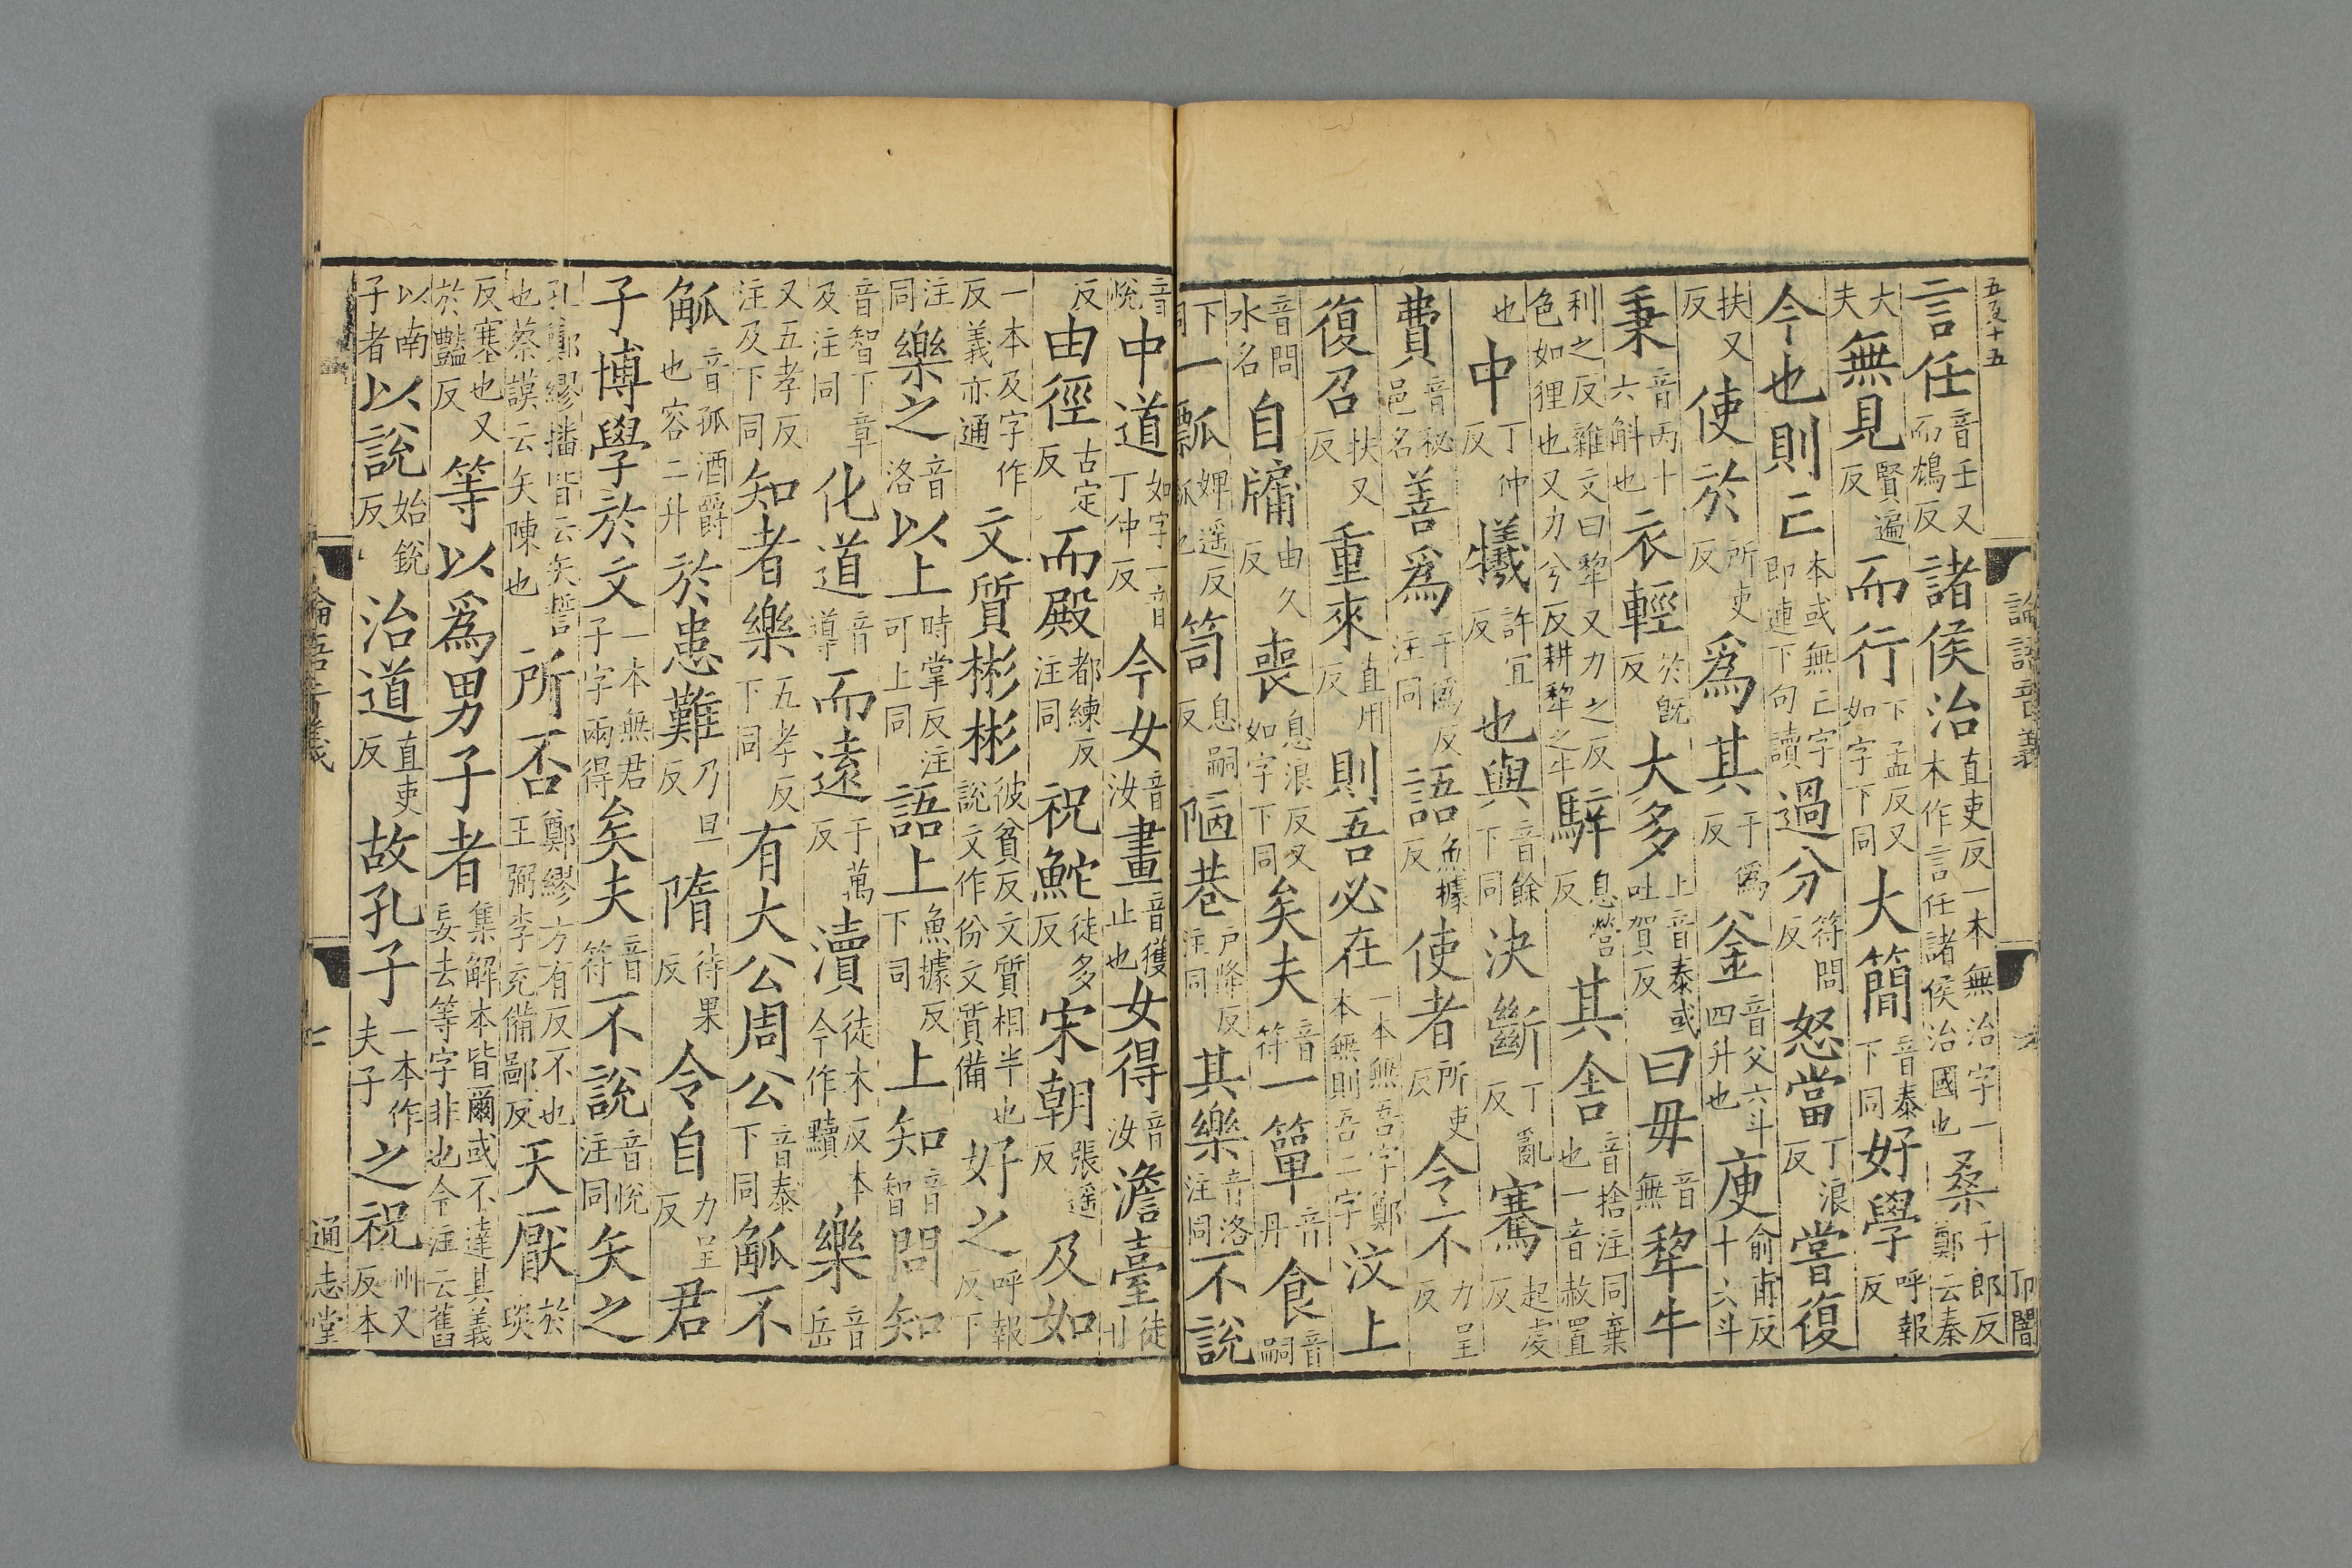 五百十五
論語音義
卯闇
言任音壬又而鴆反諸侯治直吏反一本無治字一本作言任諸侯治國也桑子郎反鄭云秦
大夫無見賢遍反而行下孟反又如字下同大簡音泰下同好學呼報反
今也則亡本或無亡字即連下句讀過分符問反怒當丁浪反嘗復
扶又反使於所吏反爲其于爲反釜音父六斗四升也庾俞甫反十六斗
秉音丙十六斛也衣輕於旣反大多上音泰或吐賀反曰毋音無犂牛
利之反雜文曰犂又力之反色如狸也又力兮反耕犂之牛騂息營反其舍音捨注同棄也一音赦置
也中丁仲反犧許宜反也與音餘下同決斷丁亂反騫起虔反
費音秘邑名善爲于僞反注同語魚據反使者所吏反令不力呈反
復召扶又反重來直用反則吾必在一本無吾字鄭本無則吾二字汶上
音問水名自牖由久反喪息浪反又如字下同矣夫音符一簞音丹食音嗣
下同一瓢婢遥反瓠也笥息嗣反陋巷户降反注同其樂音洛注同不說
音悅中道如字一音丁仲反今女音汝畫音獲止也女得音汝澹臺徒甘
反由徑古定反而殿都練反注同祝鮀徒多反宋朝張遥反及如
一本及字作反義亦通文質彬彬彼貧反文質相半也說文作份文質備好之呼報反下
注同樂之音洛以上時掌反注可上同語上魚據反下同上知音智問知
音智下章及注同化道音導而遠于萬反瀆徒木反本今作黷樂音岳
又五孝反注及下同知者樂五孝反下同有大公周公音泰下同觚不
觚音孤酒爵也容二升於患難乃旦反隋待果反令自力呈反君
子博學於文一本無君子字兩得矣夫音符不說音悅注同矢之
孔鄭繆播皆云矢誓也蔡謨云矢陳也所否鄭繆方有反不也王弼李充備鄙反天厭於琰
反塞也又於豔反等以爲男子者集解本皆爾或不達其義妄去等字非也今注云舊
以南子者以說始銳反治道直吏反故孔子一本作夫子之祝州又反本
論語音義
七
通志堂